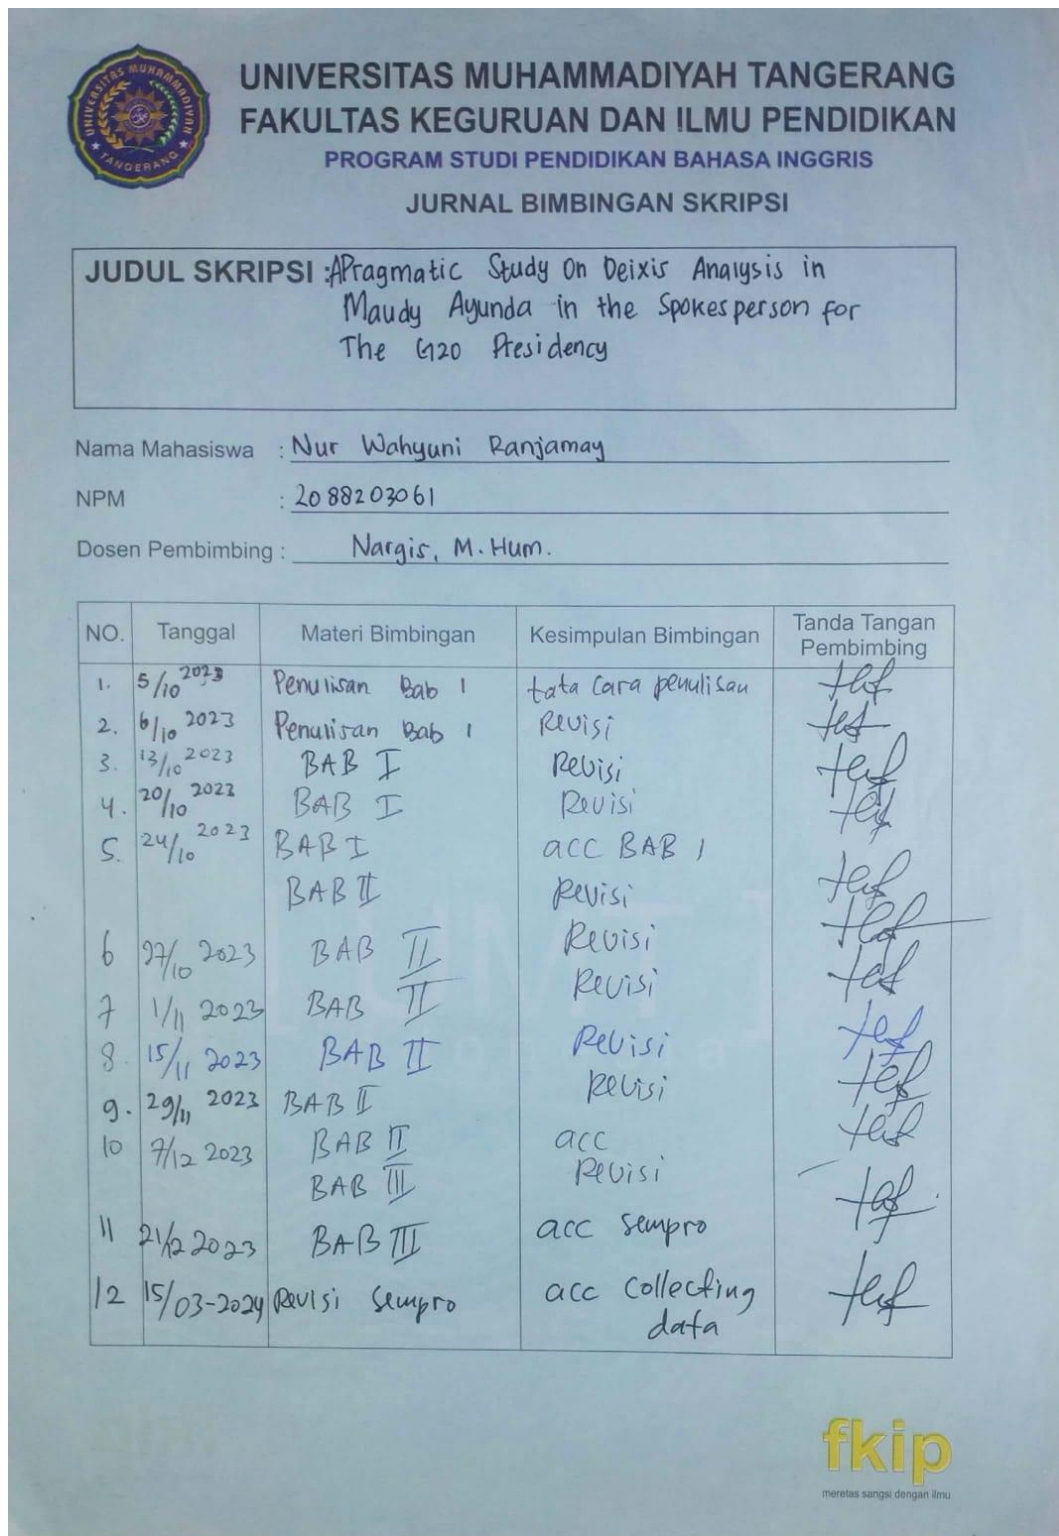 UNIVERSITAS MUHAMMADIYAH TANGERANG
UNIVERSITAS MUHAMMADIYAH TANGERANG
FAKULTAS KEGURUAN DAN ILMU PENDIDIKAN
PROGRAM STUDI PENDIDIKAN BAHASA INGGRIS
JURNAL BIMBINGAN SKRIPSI
JUDUL SKRIPSI : A Pragmatic Study On Deixis Analysis in
Maudy Ayunda in the Spokesperson for
The G20 Presidency
Nama Mahasiswa : Nur Wahyuni Ranjamay
NPM : 2088203061
Dosen Pembimbing : Nargis, M.Hum.
NO. Tanggal Materi Bimbingan Kesimpulan Bimbingan Tanda Tangan Pembimbing
1. 5/10 2023 Penulisan Bab 1 tata cara penulisan
2. 6/10 2023 Penulisan Bab 1 Revisi
3. 13/10 2023 BAB I Revisi
4. 20/10 2023 BAB I Revisi
5. 24/10 2023 BAB I acc BAB 1
BAB II Revisi
6 27/10 2023 BAB II Revisi
7 1/11 2023 BAB II Revisi
8. 15/11 2023 BAB II Revisi
9. 29/11 2023 BAB II Revisi
10 7/12 2023 BAB II acc
BAB III Revisi
11 21/12 2023 BAB III acc sempro
12 15/03-2024 Revisi Sempro acc collecting
data
fkip
meretas sangsi dengan ilmu